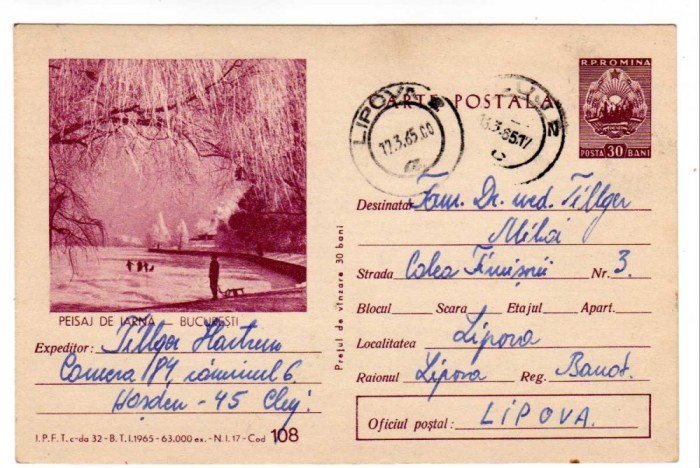 R.P. ROMINA
POSTA 30 BANI
CARTE POSTALA
LIPOVA 2
12.3.65.00
PEISAJ DE IARNA — BUCUREȘTI
Expeditor: Tillger
Camera 184, căminul 6
45 Cluj.
I.P.F.T. c-da 32 - B.T. I.1965 - 63.000 ex. - N.I. 17 - Cod 108
Prețul de vînzare 30 bani
Destinatar Fam. Dr. med. Tillger
Mihai
Strada Calea Timișorii Nr. 3.
Blocul Scara Etajul Apart.
Localitatea Lipova
Raionul Lipova Reg. Banat.
Oficiul poștal: LIPOVA.